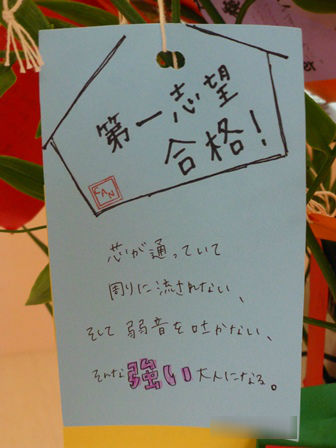 第一志望
合格!
CAN
芯が通っていて
周りに流されない、
そして弱音を吐かない、
そんな強い大人になる。